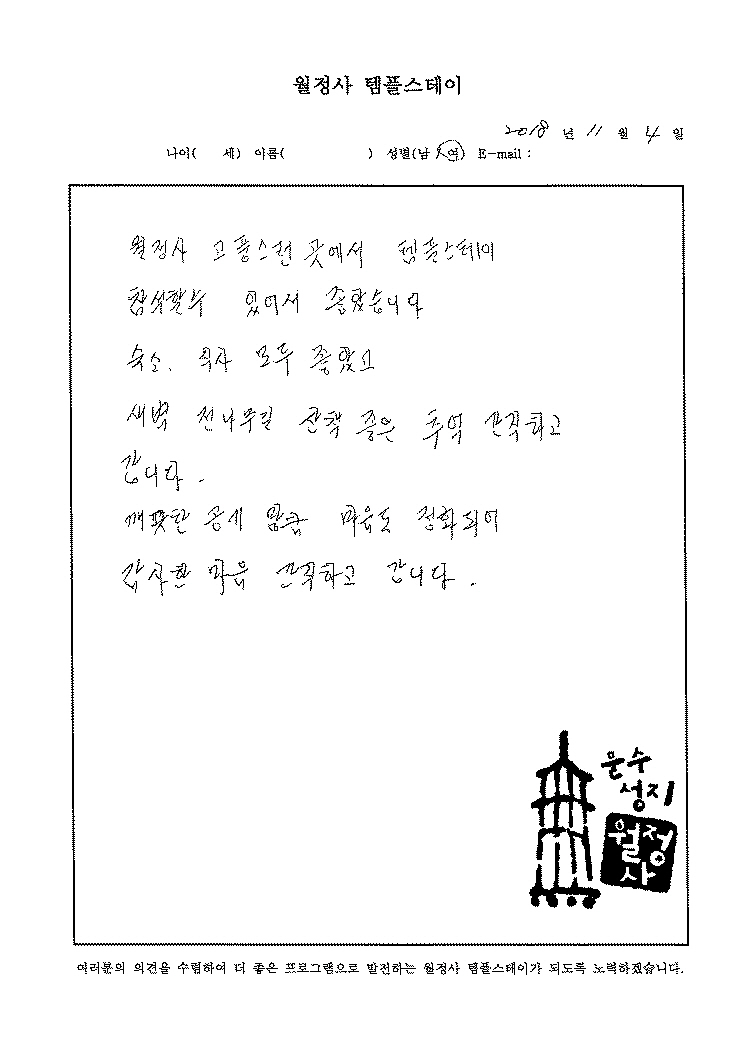 월정사 템플스테이
2018 년 11 월 4 일
나이( 세) 이름( ) 성별(남/여) E-mail :
월정사 고풍스런 곳에서 템플스테이
참석할수 있어서 좋았습니다
숙소, 식사 모두 좋았고
새벽 전나무길 산책 좋은 추억 간직하고
갑니다.
깨끗한 공기 만큼 마음도 정화되어
감사한 마음 간직하고 갑니다.
문수
성지
월정
사
여러분의 의견을 수렴하여 더 좋은 프로그램으로 발전하는 월정사 템플스테이가 되도록 노력하겠습니다.